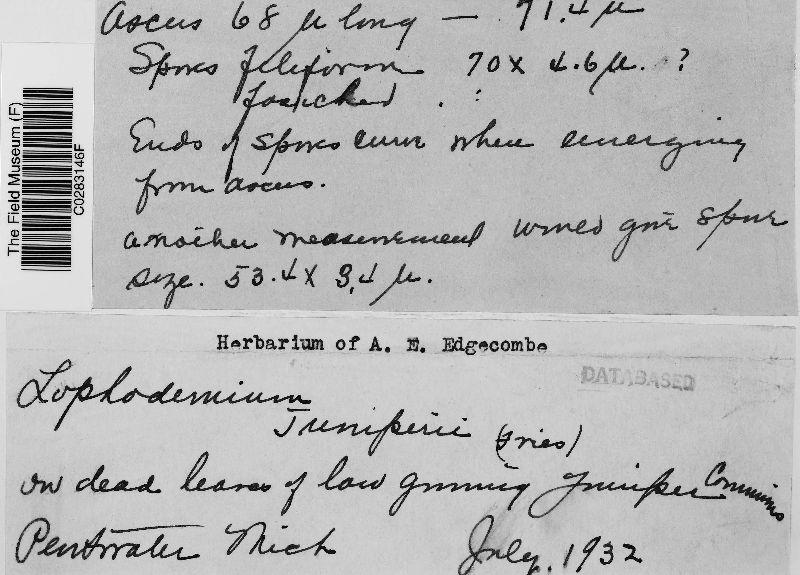 Ascus 68 μ long — 71.4 μ
Spores filiform 70 x 4.6 μ. ?
Ends of spores curve when emerging
from ascus.
another measurement would give spore
size. 53.4 x 3.4 μ.
The Field Museum (F)
C0283146F
Herbarium of A. E. Edgecombe
DATABASED
Lophodermium
Juniperii (Fries)
on dead leaves of low growing Juniper Communis
Pentwater Mich July, 1932